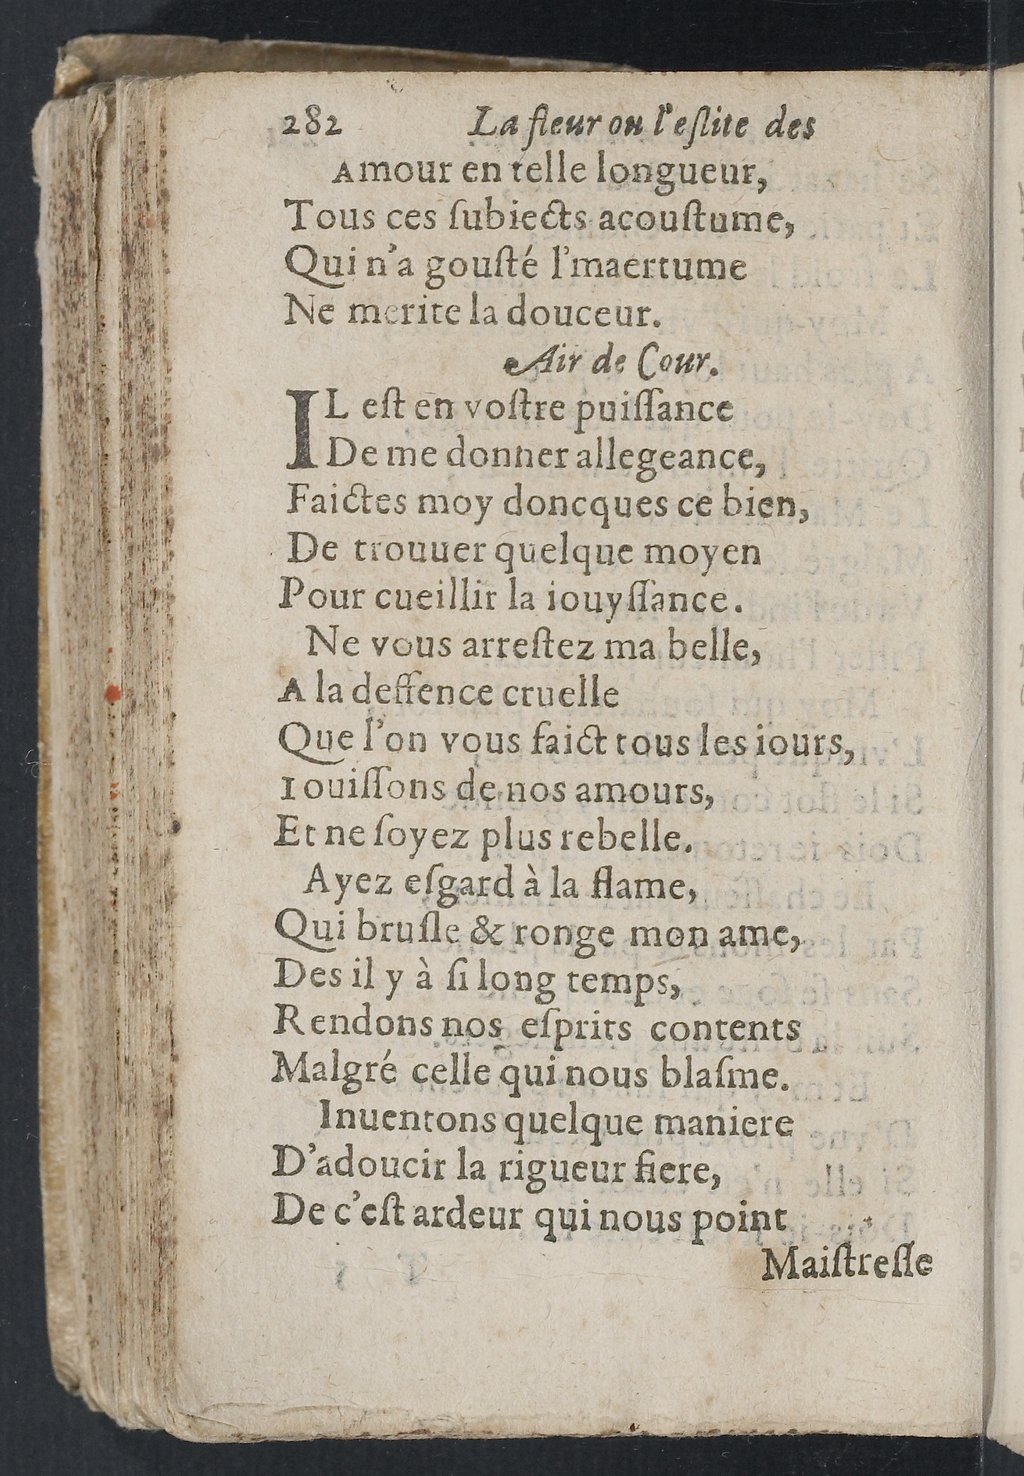 282 La fleur ou l'eſlite des
Amour en telle longueur,
Tous ces ſubiects acouſtume,
Qui n'a gouſté l'maertume
Ne merite la douceur.
Air de Cour.
IL eſt en voſtre puiſſance
De me donner allegeance,
Faictes moy doncques ce bien,
De trouuer quelque moyen
Pour cueillir la iouyſſance.
Ne vous arreſtez ma belle,
A la deffence cruelle
Que l'on vous faict tous les iours,
Iouiſſons de nos amours,
Et ne ſoyez plus rebelle.
Ayez eſgard à la flame,
Qui bruſle & ronge mon ame,
Des il y à ſi long temps,
Rendons nos eſprits contents
Malgré celle qui nous blaſme.
Inuentons quelque maniere
D'adoucir la rigueur fiere,
De c'eſt ardeur qui nous point
Maiſtreſſe